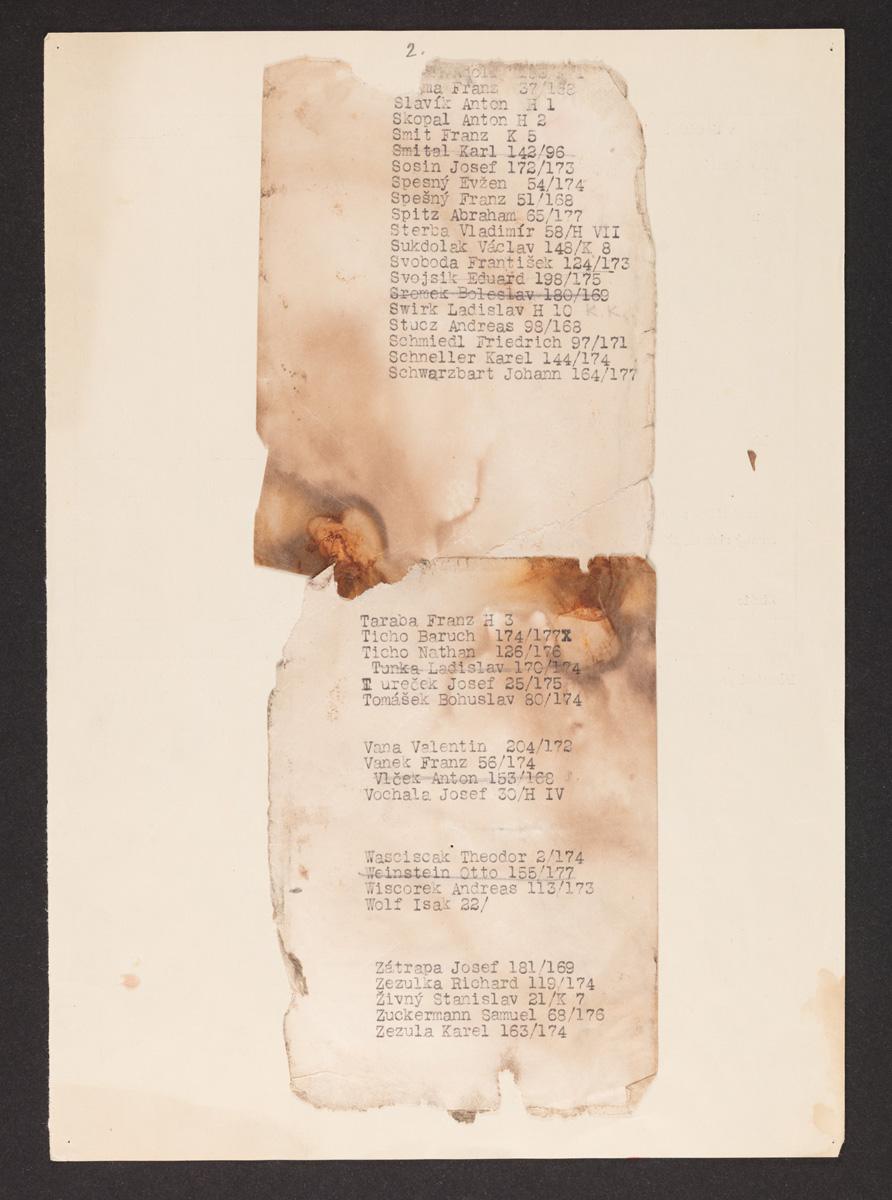 2.
ma Franz 37/188
Slavík Anton H 1
Skopal Anton H 2
Smit Franz K 5
Smital Karl 142/96
Sosin Josef 172/173
Spesný Evžen 54/174
Spešný Franz 51/168
Spitz Abraham 65/177
Sterba Vladimír 58/H VII
Sukdolak Václav 148/K 8
Svoboda František 124/173
Svojsik Eduard 198/175
Sromek Boleslav 180/169
Swirk Ladislav H 10 K.K.
Stucz Andreas 98/168
Schmiedl Friedrich 97/171
Schneller Karel 144/174
Schwarzbart Johann 164/177
Taraba Franz H 3
Ticho Baruch 174/177X
Ticho Nathan 126/176
Tunka Ladislav 170/174
T ureček Josef 25/175
Tomášek Bohuslav 80/174
Vana Valentin 204/172
Vanek Franz 56/174
Vlček Anton 153/168
Vochala Josef 30/H IV
Wasciscak Theodor 2/174
Weinstein Otto 155/177
Wiscorek Andreas 113/173
Wolf Isak 22/
Zátrapa Josef 181/169
Zezulka Richard 119/174
Živný Stanislav 21/K 7
Zuckermann Samuel 68/176
Zezula Karel 163/174